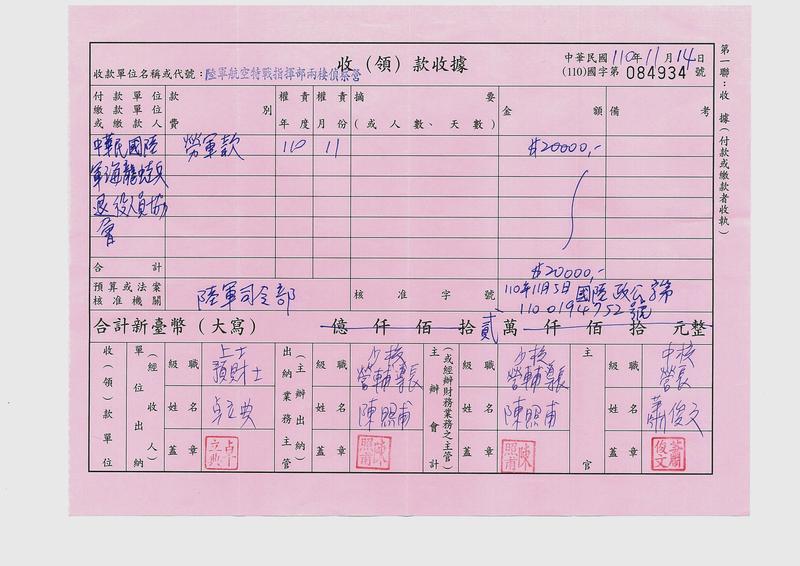 收（領）款收據
中華民國110年11月14日
收款單位名稱或代號：陸軍航空特戰指揮部兩棲偵察營
(110)國字第 084934 號
第一聯：收據（付款或繳款者收執）
付款單位
繳款單位
或繳款人
款
費
別
權責
年度
權責
月份
摘要
（或人數、天數）
金額
備考
中華民國陸 勞軍款 110 11 $20000,-
軍海龍蛙兵
退役人員協
會
合計 $20000,-
預算或法案
核准機關
陸軍司令部
核准字號
110年11月5日國陸政公字第
1100194752號
合計新臺幣（大寫） 億仟佰拾貳萬仟佰拾元整
收（領）款單位
單位出納
（經收人）
級職 上士
預財士
姓名 卓立典
蓋章 卓立典
出納業務主管
（主辦出納）
級職 少校
營輔導長
姓名 陳照甫
蓋章 陳照甫
主辦會計
（或經辦財務業務之主管）
級職 少校
營輔導長
姓名 陳照甫
蓋章 陳照甫
主官
級職 中校
營長
姓名 蕭俊文
蓋章 蕭俊文